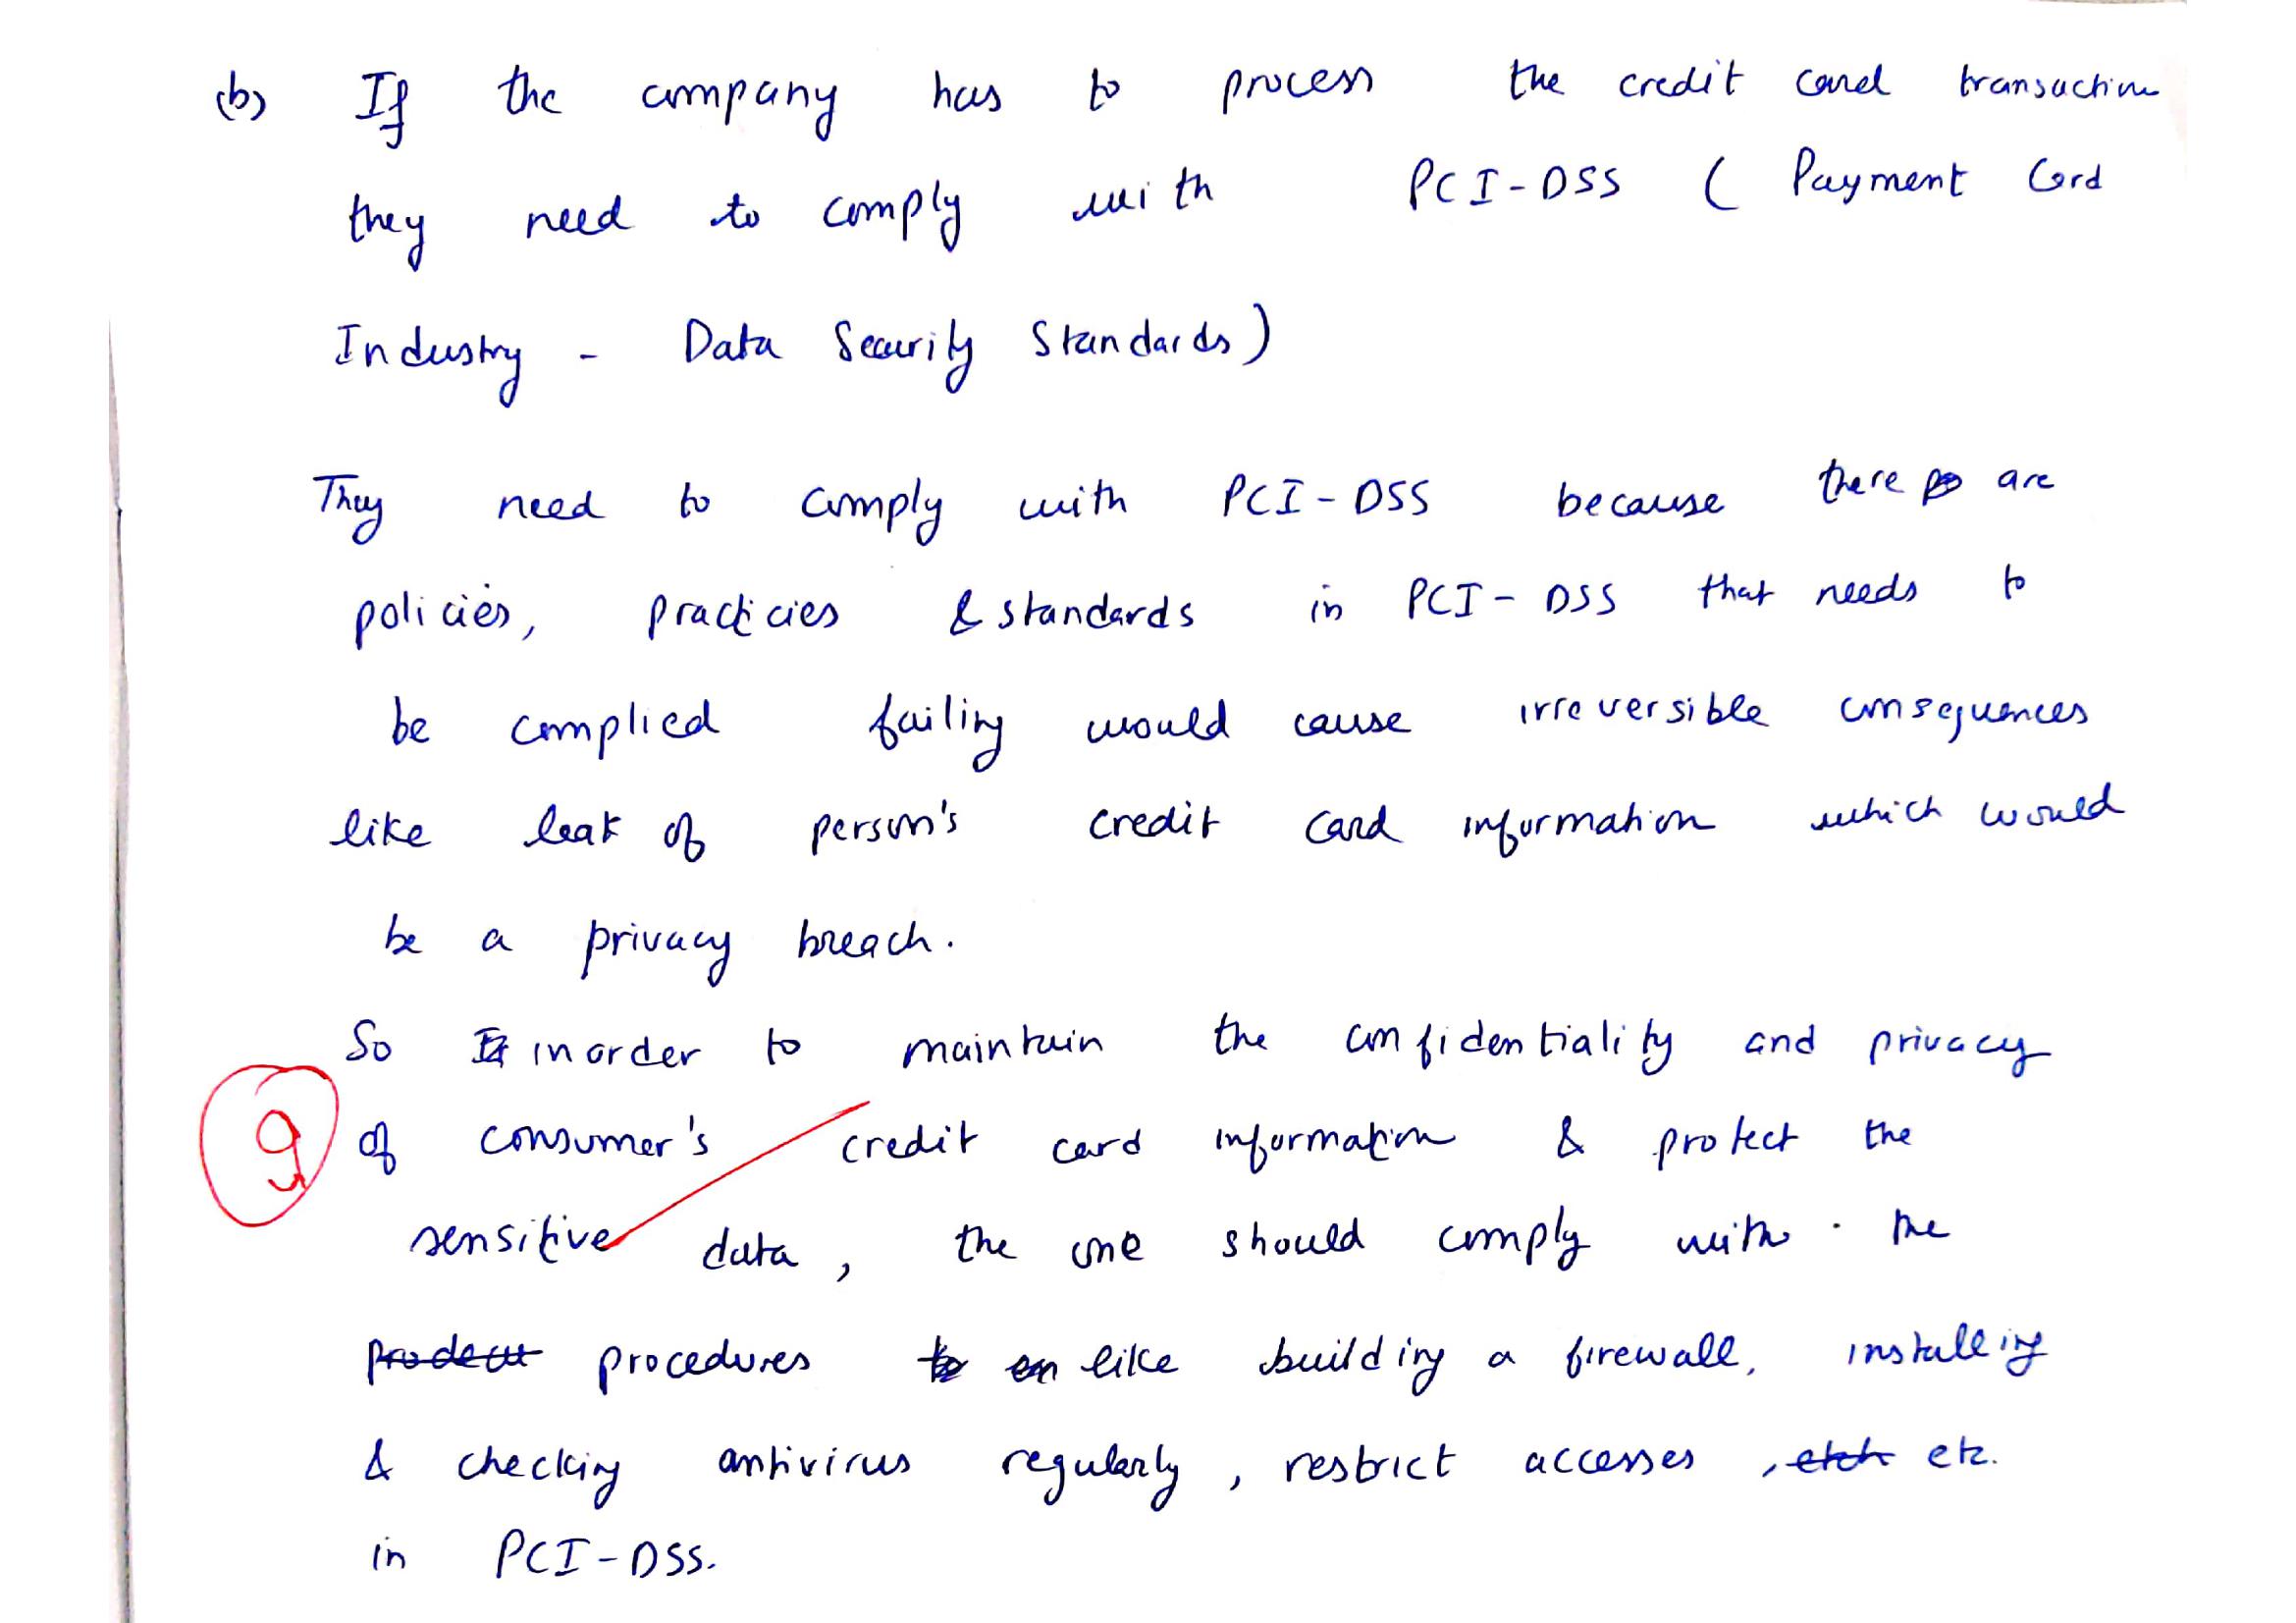 (b) If the company has to process the credit card transaction
they need to comply with PCI-DSS ( Payment Card
Industry - Data Security Standards)
They need to comply with PCI-DSS because there are
policies, practicies & standards in PCI-DSS that needs to
be complied failing would cause irreversible consequences
like leak of person's credit card information which would
be a privacy breach.
So inorder to maintain the confidentiality and privacy
9
of consumer's credit card information & protect the
sensitive data, the one should comply with the
procedures like building a firewall, installing
& checking antivirus regularly, restrict accesses, etc.
in PCI-DSS.